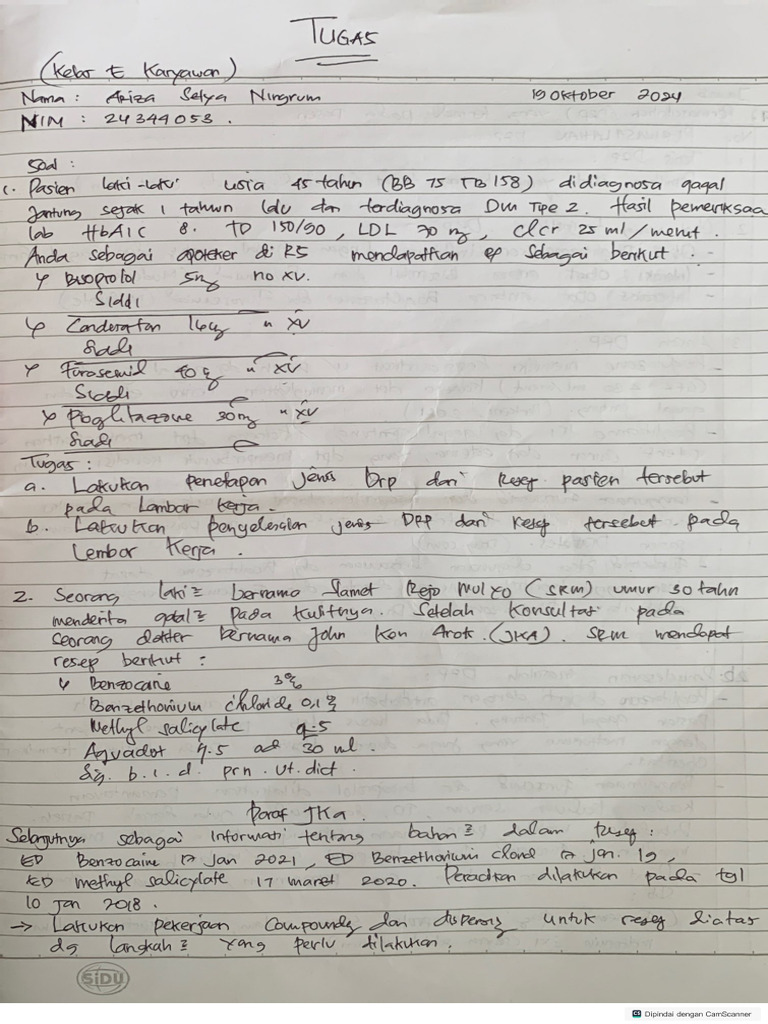 TUGAS
(Kelas E Karyawan)
Nama : Ariza Setya Ningrum 19 Oktober 2024
NIM : 24344053 .
Soal :
1. Pasien laki-laki usia 45 tahun (BB 75 TB 158) didiagnosa gagal
Jantung sejak 1 tahun lalu dan terdiagnosa Dm Tipe 2. Hasil pemeriksaa
lab HbA1C 8. TD 150/90 , LDL 70 mg, Clcr 25 ml/menit .
Anda sebagai apoteker di RS mendapatkan Sebagai berikut :
Bisoprolol 5mg no XV.
S1dd1
Candesartan 16mg " XV
S1dd1
Furosemid 40 " XV
S1dd1
Pioglitazone 30mg " XV
S1dd1
Tugas :
a. Lakukan Penetapan jenis Drp dari Resep pasien tersebut
pada Lembar Kerja .
b. Lakukan penyelesaian jenis DRP dari resep tersebut pada
Lembar Kerja .
2. Seorang laki2 bernama Slamet Rejo Mulyo (SRM) umur 30 tahn
menderita gatal2 pada kulitnya. Setelah Konsultasi pada
seorang dokter bernama John Kon Arok. (JKA). SRM mendapat
resep berikut :
Benzocaine 3%
Benzethonium chloride 0,1%
Methyl salicylate q.s
Aquadest q.s ad 30 ml .
Sig. b.i.d. prn. ut. dict .
Paraf JKA .
Selanjutnya sebagai informasi tentang bahan2 dalam resep :
ED Benzocaine 17 Jan 2021 , ED Benzethonium clorid 17 Jan. 19 ,
ED methyl salicylate 17 maret 2020. Peracikan dilakukan pada tgl
10 Jan 2018 .
→ Lakukan pekerjaan Compoundg dan dispensg untuk resep diatas
dg langkah2 yang perlu dilakukan .
SiDU
CS Dipindai dengan CamScanner